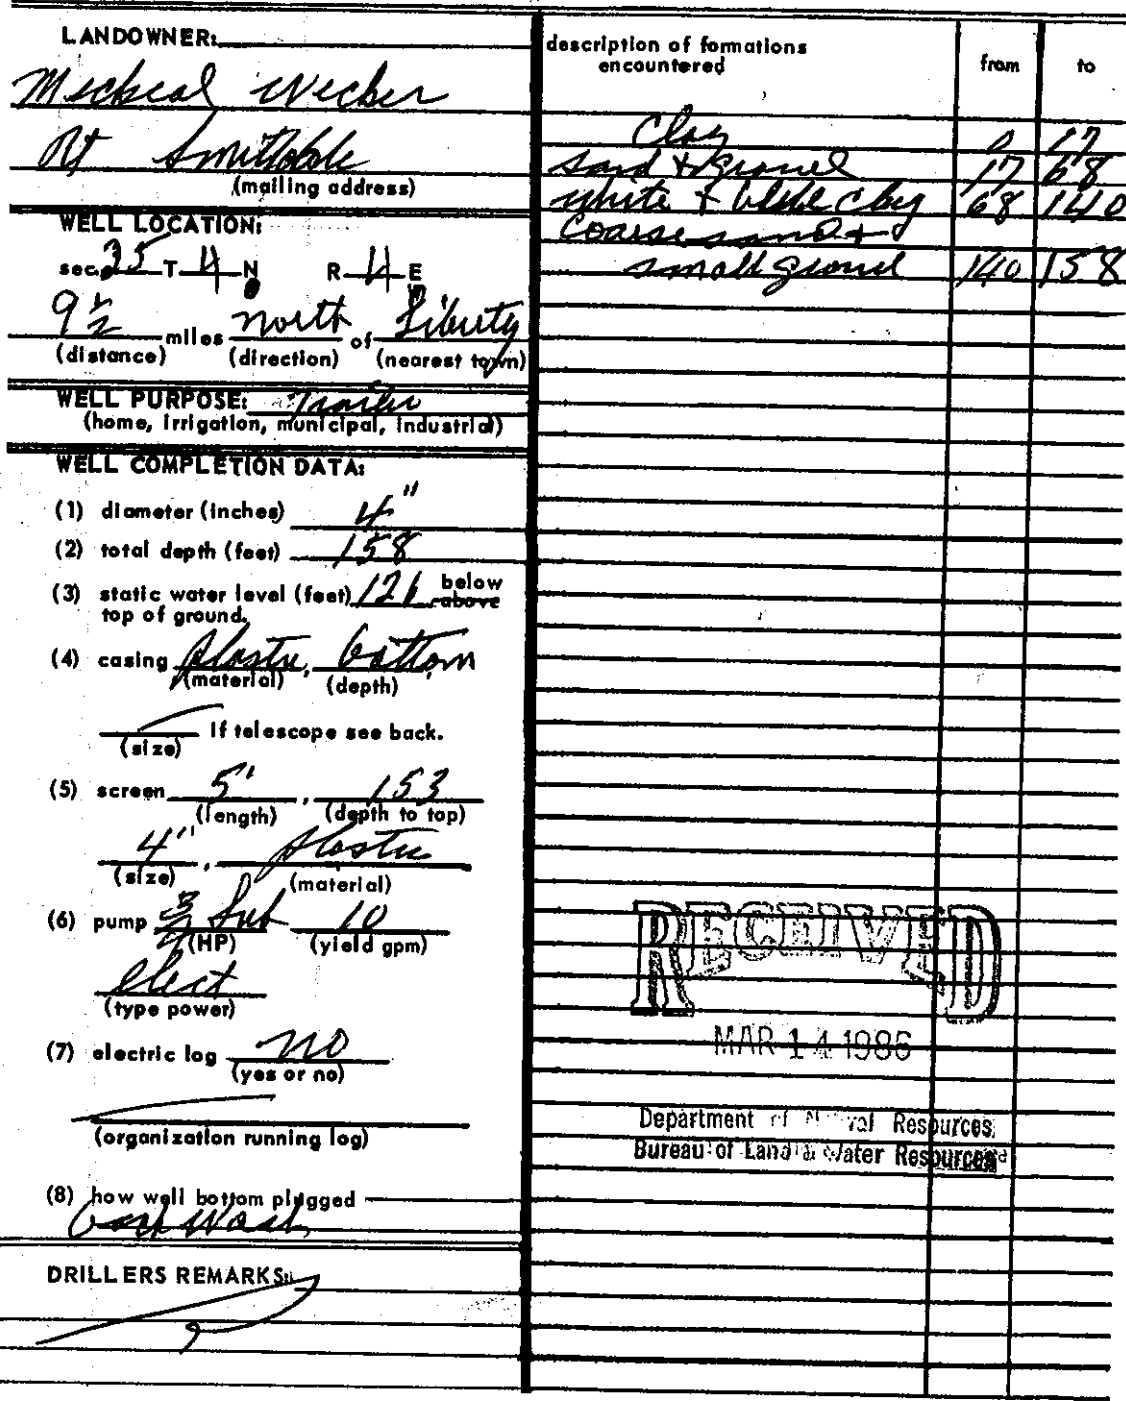 LANDOWNER:
Mickeal Wecker
Rt Smithdale
(mailing address)
WELL LOCATION:
sec. 35 T 4 N R 4 E
9 1/2 miles north of Liberty
(distance) (direction) (nearest town)
WELL PURPOSE: Trailer
(home, irrigation, municipal, industrial)
WELL COMPLETION DATA:
(1) diameter (inches) 4"
(2) total depth (feet) 158
(3) static water level (feet) 126 below
above
top of ground.
(4) casing plastic, bottom
(material) (depth)
(size) If telescope see back.
(5) screen 5', 153
(length) (depth to top)
4", plastic
(size) (material)
(6) pump 3/4 Sub 10
(HP) (yield gpm)
elect
(type power)
(7) electric log no
(yes or no)
(organization running log)
(8) how well bottom plugged
back wash
DRILLERS REMARKS:
description of formations
encountered from to
Clay 0 17
sand + gravel 17 68
white + blue clay 68 140
Coarse sand +
small gravel 140 158
RECEIVED
MAR 14 1986
Department of Natural Resources
Bureau of Land & Water Resources